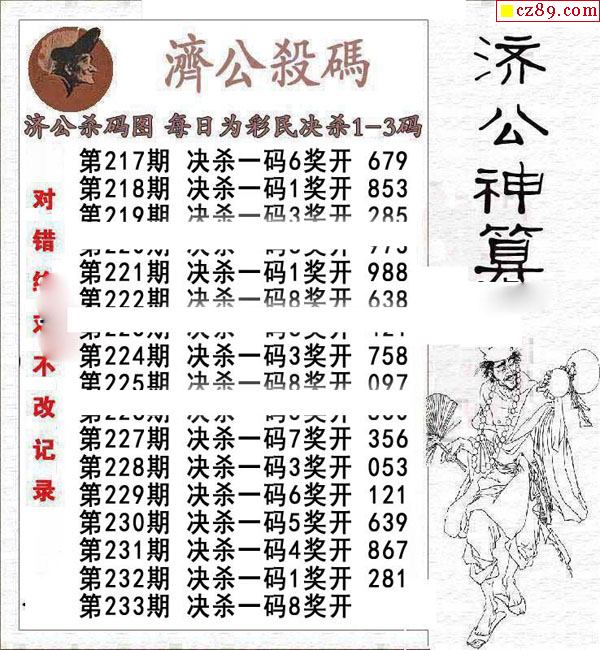 cz89.com
濟公殺碼
济公杀码图 每日为彩民决杀1-3码
第217期 决杀一码6奖开 679
第218期 决杀一码1奖开 853
第219期 决杀一码3奖开 285
第221期 决杀一码1奖开 988
第222期 决杀一码8奖开 638
第224期 决杀一码3奖开 758
第225期 决杀一码8奖开 097
第227期 决杀一码7奖开 356
第228期 决杀一码3奖开 053
第229期 决杀一码6奖开 121
第230期 决杀一码5奖开 639
第231期 决杀一码4奖开 867
第232期 决杀一码1奖开 281
第233期 决杀一码8奖开
对错 不改记录
济公神算